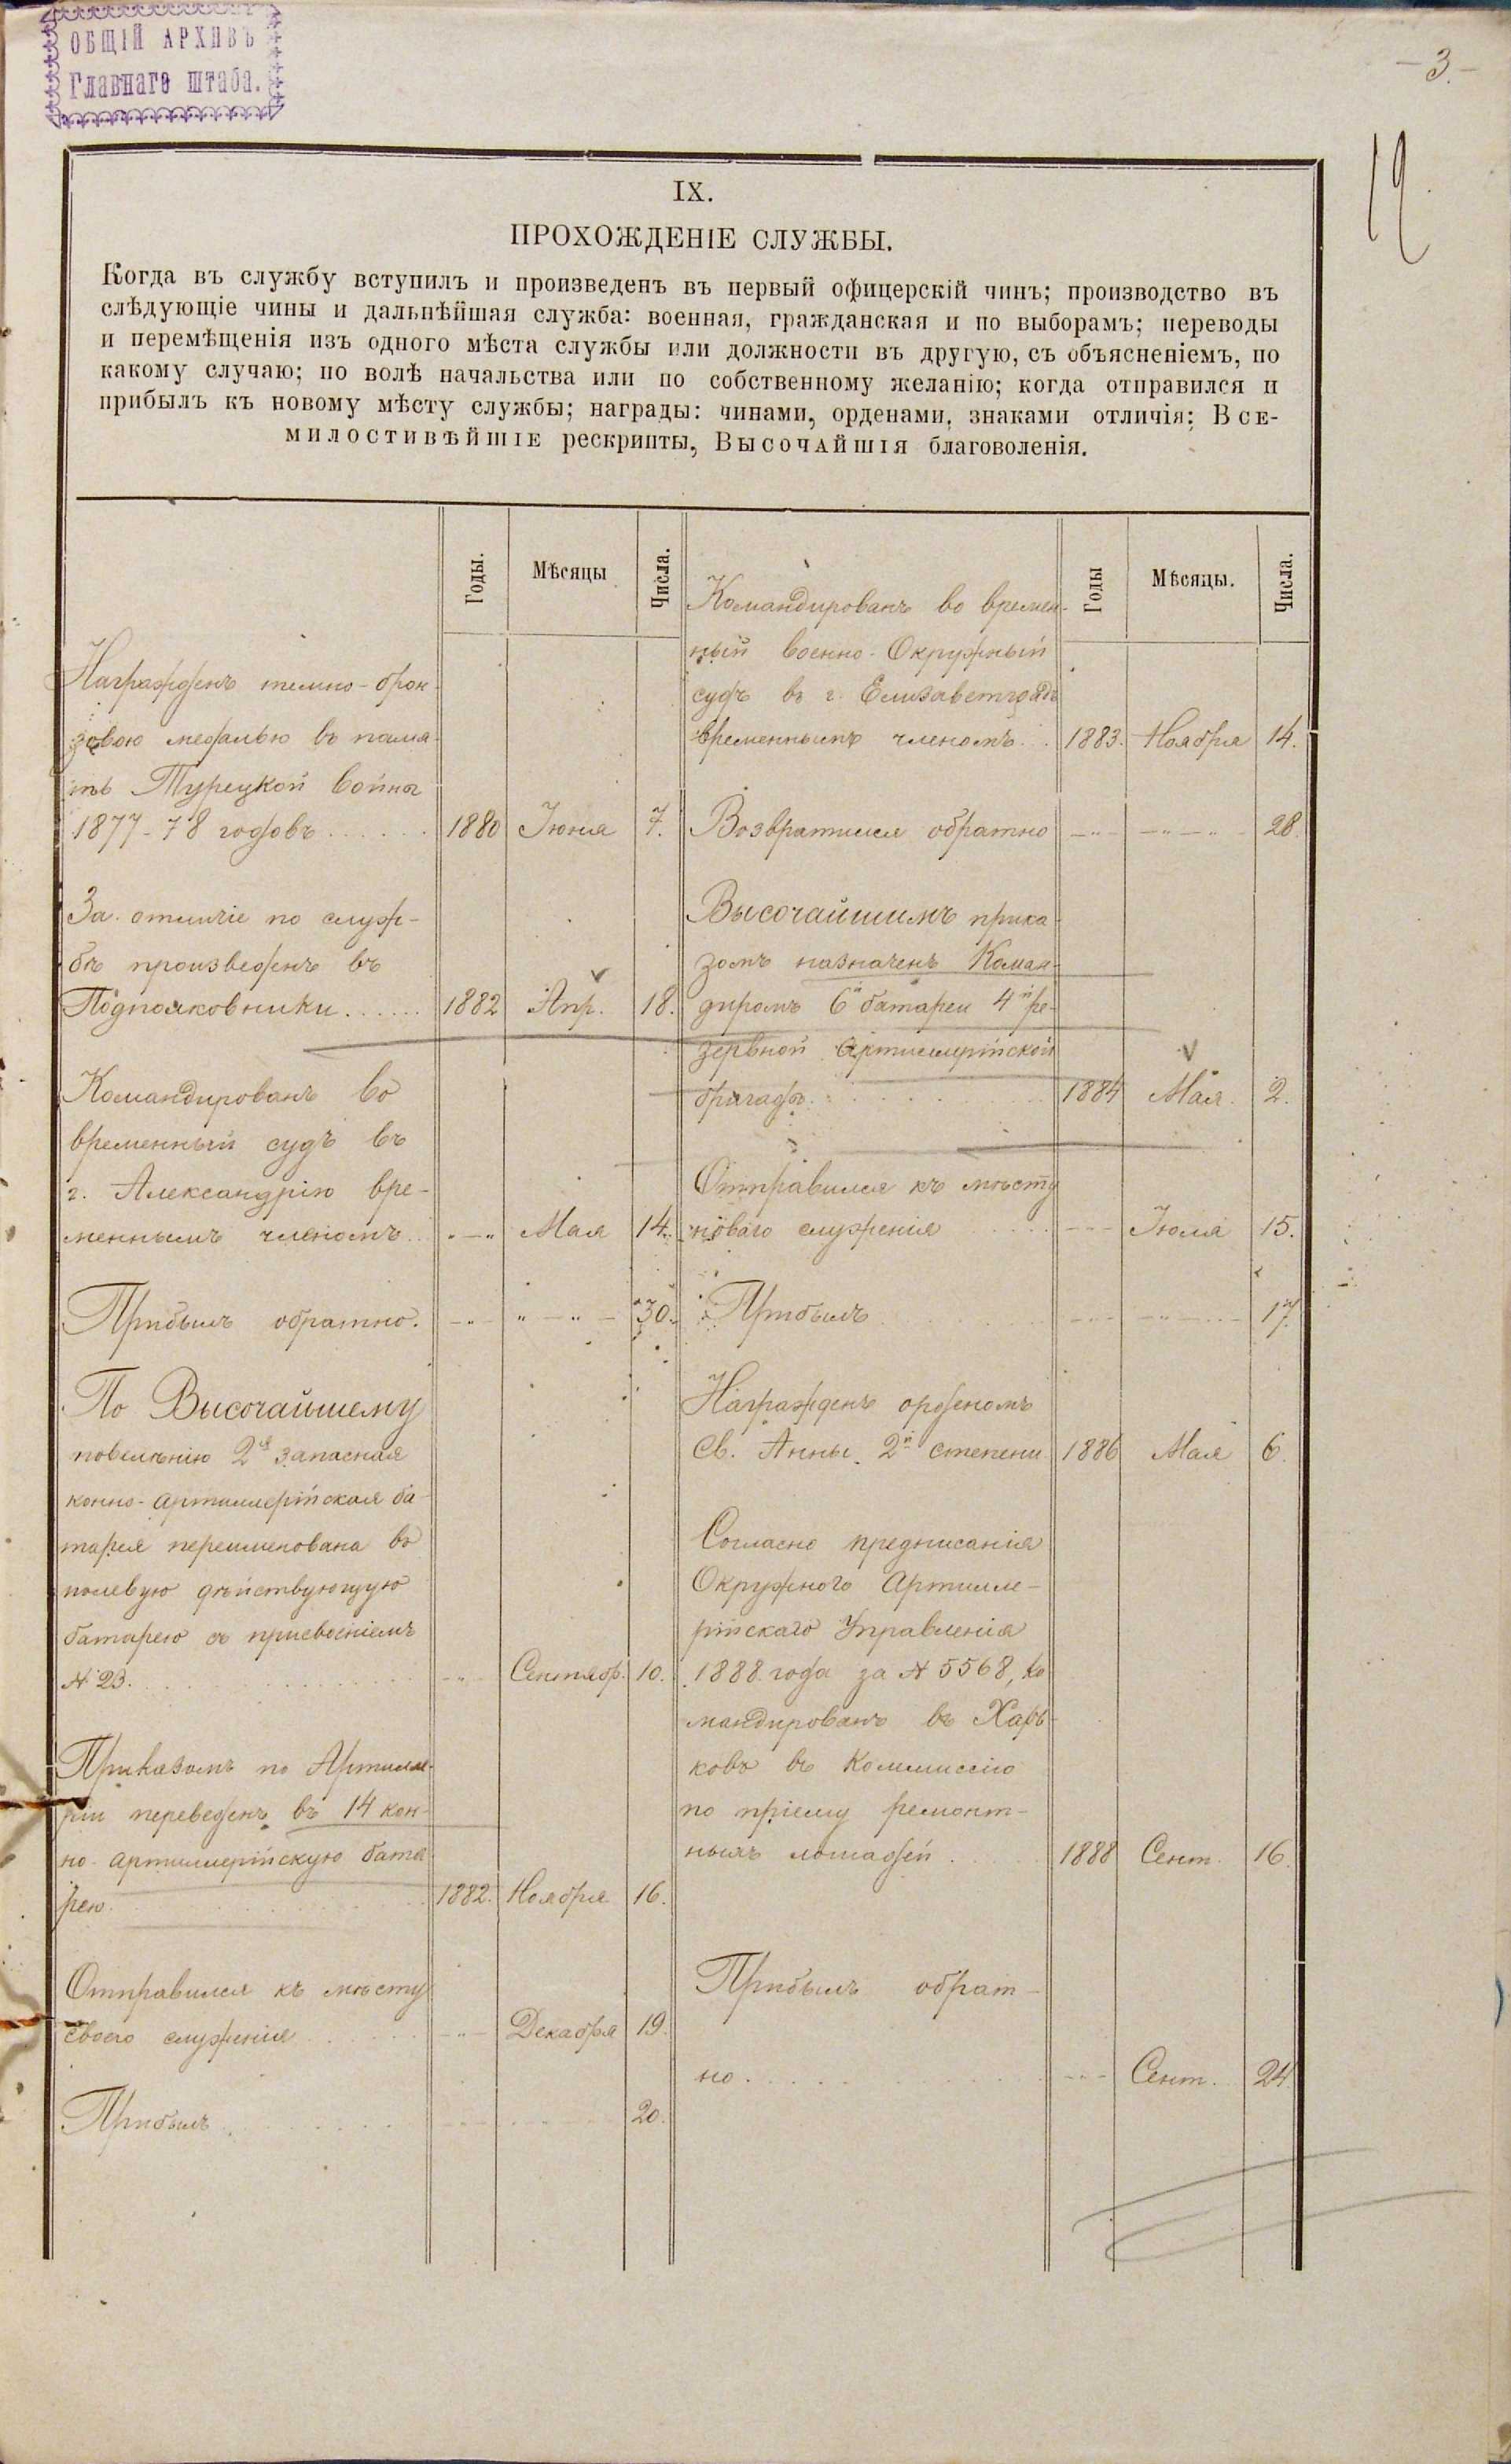 ОБЩІЙ АРХИВЪ
Главнаго штаба.
— 3. —
12
IX.
ПРОХОЖДЕНІЕ СЛУЖБЫ.
Когда въ службу вступилъ и произведенъ въ первый офицерскій чинъ; производство въ
слѣдующіе чины и дальнѣйшая служба: военная, гражданская и по выборамъ; переводы
и перемѣщенія изъ одного мѣста службы или должности въ другую, съ объясненіемъ, по
какому случаю; по волѣ начальства или по собственному желанію; когда отправился и
прибылъ къ новому мѣсту службы; награды: чинами, орденами, знаками отличія: ВСЕ-
МИЛОСТИВѢЙШІЕ рескрипты, ВЫСОЧАЙШІЯ благоволенія.
Годы. Мѣсяцы Числа.
Награжденъ темно-брон-
зовою медалью въ памя-
ть Турецкой войны
1877-78 годовъ . . . . . . 1880 Іюня 7.
За отличіе по служ-
бѣ произведенъ въ
Подполковники . . . . . . 1882 Апр. 18.
Командированъ во
временный судъ въ
г. Александрію вре-
меннымъ членомъ . . „ — „ Мая 14.
Прибылъ обратно. — „ — „ — „ — 30.
По Высочайшему
повелѣнію 2я запасная
конно-артиллерійская ба-
тарея переименована въ
полевую дѣйствующую
батарею съ присвоеніемъ
№ 23. . . . . . — „ — Сентябр. 10.
Приказомъ по Артилле-
ріи переведенъ въ 14 кон-
но-артиллерійскую бата-
рею . . . . . . 1882. Ноября 16.
Отправился къ мѣсту
своего служенія . . . . . . — „ — Декабря 19.
Прибылъ . . . . . . 20.
Годы Мѣсяцы. Числа.
Командированъ во времен-
ный военно-Окружный
судъ въ г. Елизаветградъ
временнымъ членомъ . . 1883. Ноября 14.
Возвратился обратно — „ — — „ — „ — 28.
Высочайшимъ прика-
зомъ назначенъ Коман-
диромъ 6й батареи 4й ре-
зервной Артиллерійской
бригады . . . . . . 1884 Мая 2.
Отправился къ мѣсту
новаго служенія . . . — — — Іюля 15.
Прибылъ . . . . . . — „ — — „ — 17.
Награжденъ орденомъ
Св. Анны 2й степени 1886 Мая 6.
Согласно предписанія
Окружного Артилле-
рійскаго Управленія
1888 года за № 5568, ко-
мандированъ въ Харь-
ковъ въ Коммиссію
по пріему ремонт-
ныхъ лошадей . . . 1888 Сент. 16.
Прибылъ обрат-
но . . . . . . — „ — Сент. 24.